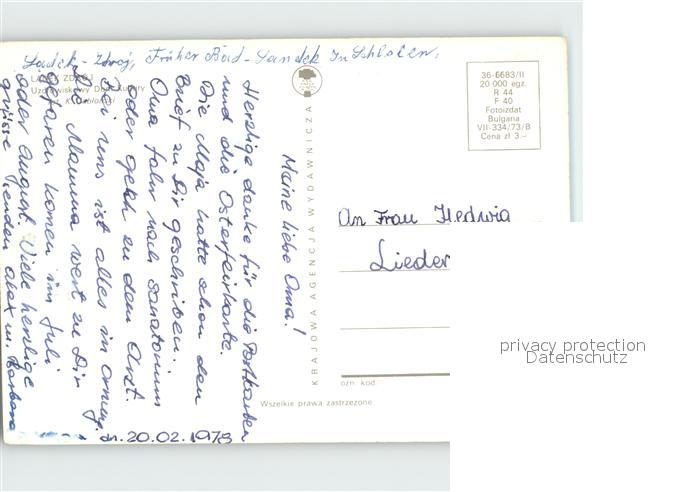 Ladek-Zdroj, Früher Bad-Landek In Schlesien,
LADEK ZDRÓJ
Uzdrowiskowy Dom Kultury
Fot. K. Jabłoński
Maine liebe Oma!
Herzlige danke für die Postkarten
und die Osterfeirkarte.
Die Maja hatte schon den
Brief zu Dir geschriben.
Oma fahr nach Sanatorium
oder geh zu dem Arzt.
Bei uns ist alles in ornung.
Mamma wert zu Dir
gefaren komen im Juli
oder august. Viele herzlige
grüsse senden Alex u. Barbara
dn. 20.02.1978
KRAJOWA AGENCJA WYDAWNICZA
36-6683/II
20 000 egz.
R 44
F 40
Fotoizdat
Bulgaria
VII-334/73/B
Cena zł 3.–
An Frau Hedwig
Lieder
ozn. kod.
Wszelkie prawa zastrzeżone
privacy protection
Datenschutz